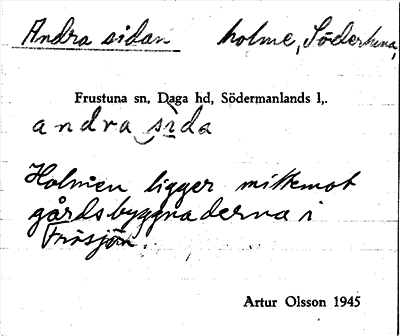 Andra sidan holme, Södertuna,
Frustuna sn, Daga hd, Södermanlands l,.
andra sida
Holmen ligger mittemot
gårdsbyggnaderna i
Frösjön.
Artur Olsson 1945